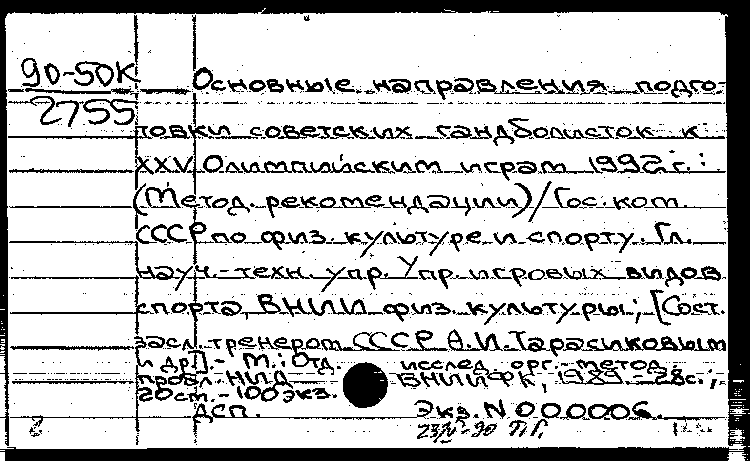 90-50К Основные направления подго-
2755
товки советских гандболисток к
XXV Олимпийским играм 1992 г.:
(Метод. рекомендации)/Гос. ком.
СССР по физ. культуре и спорту. Гл.
науч.-техн. упр. Упр. игровых видов
спорта, ВНИИ физ. культуры; [Сост.
засл. тренером СССР А.И. Тарасиковым
и др.]. - М.: Отд. исслед. орг.-метод.
пробл. НИД ВНИИФК, 1989. - 28с.;
20см. - 100экз.
ДСП. Экз. N 000006.
23/IV-90